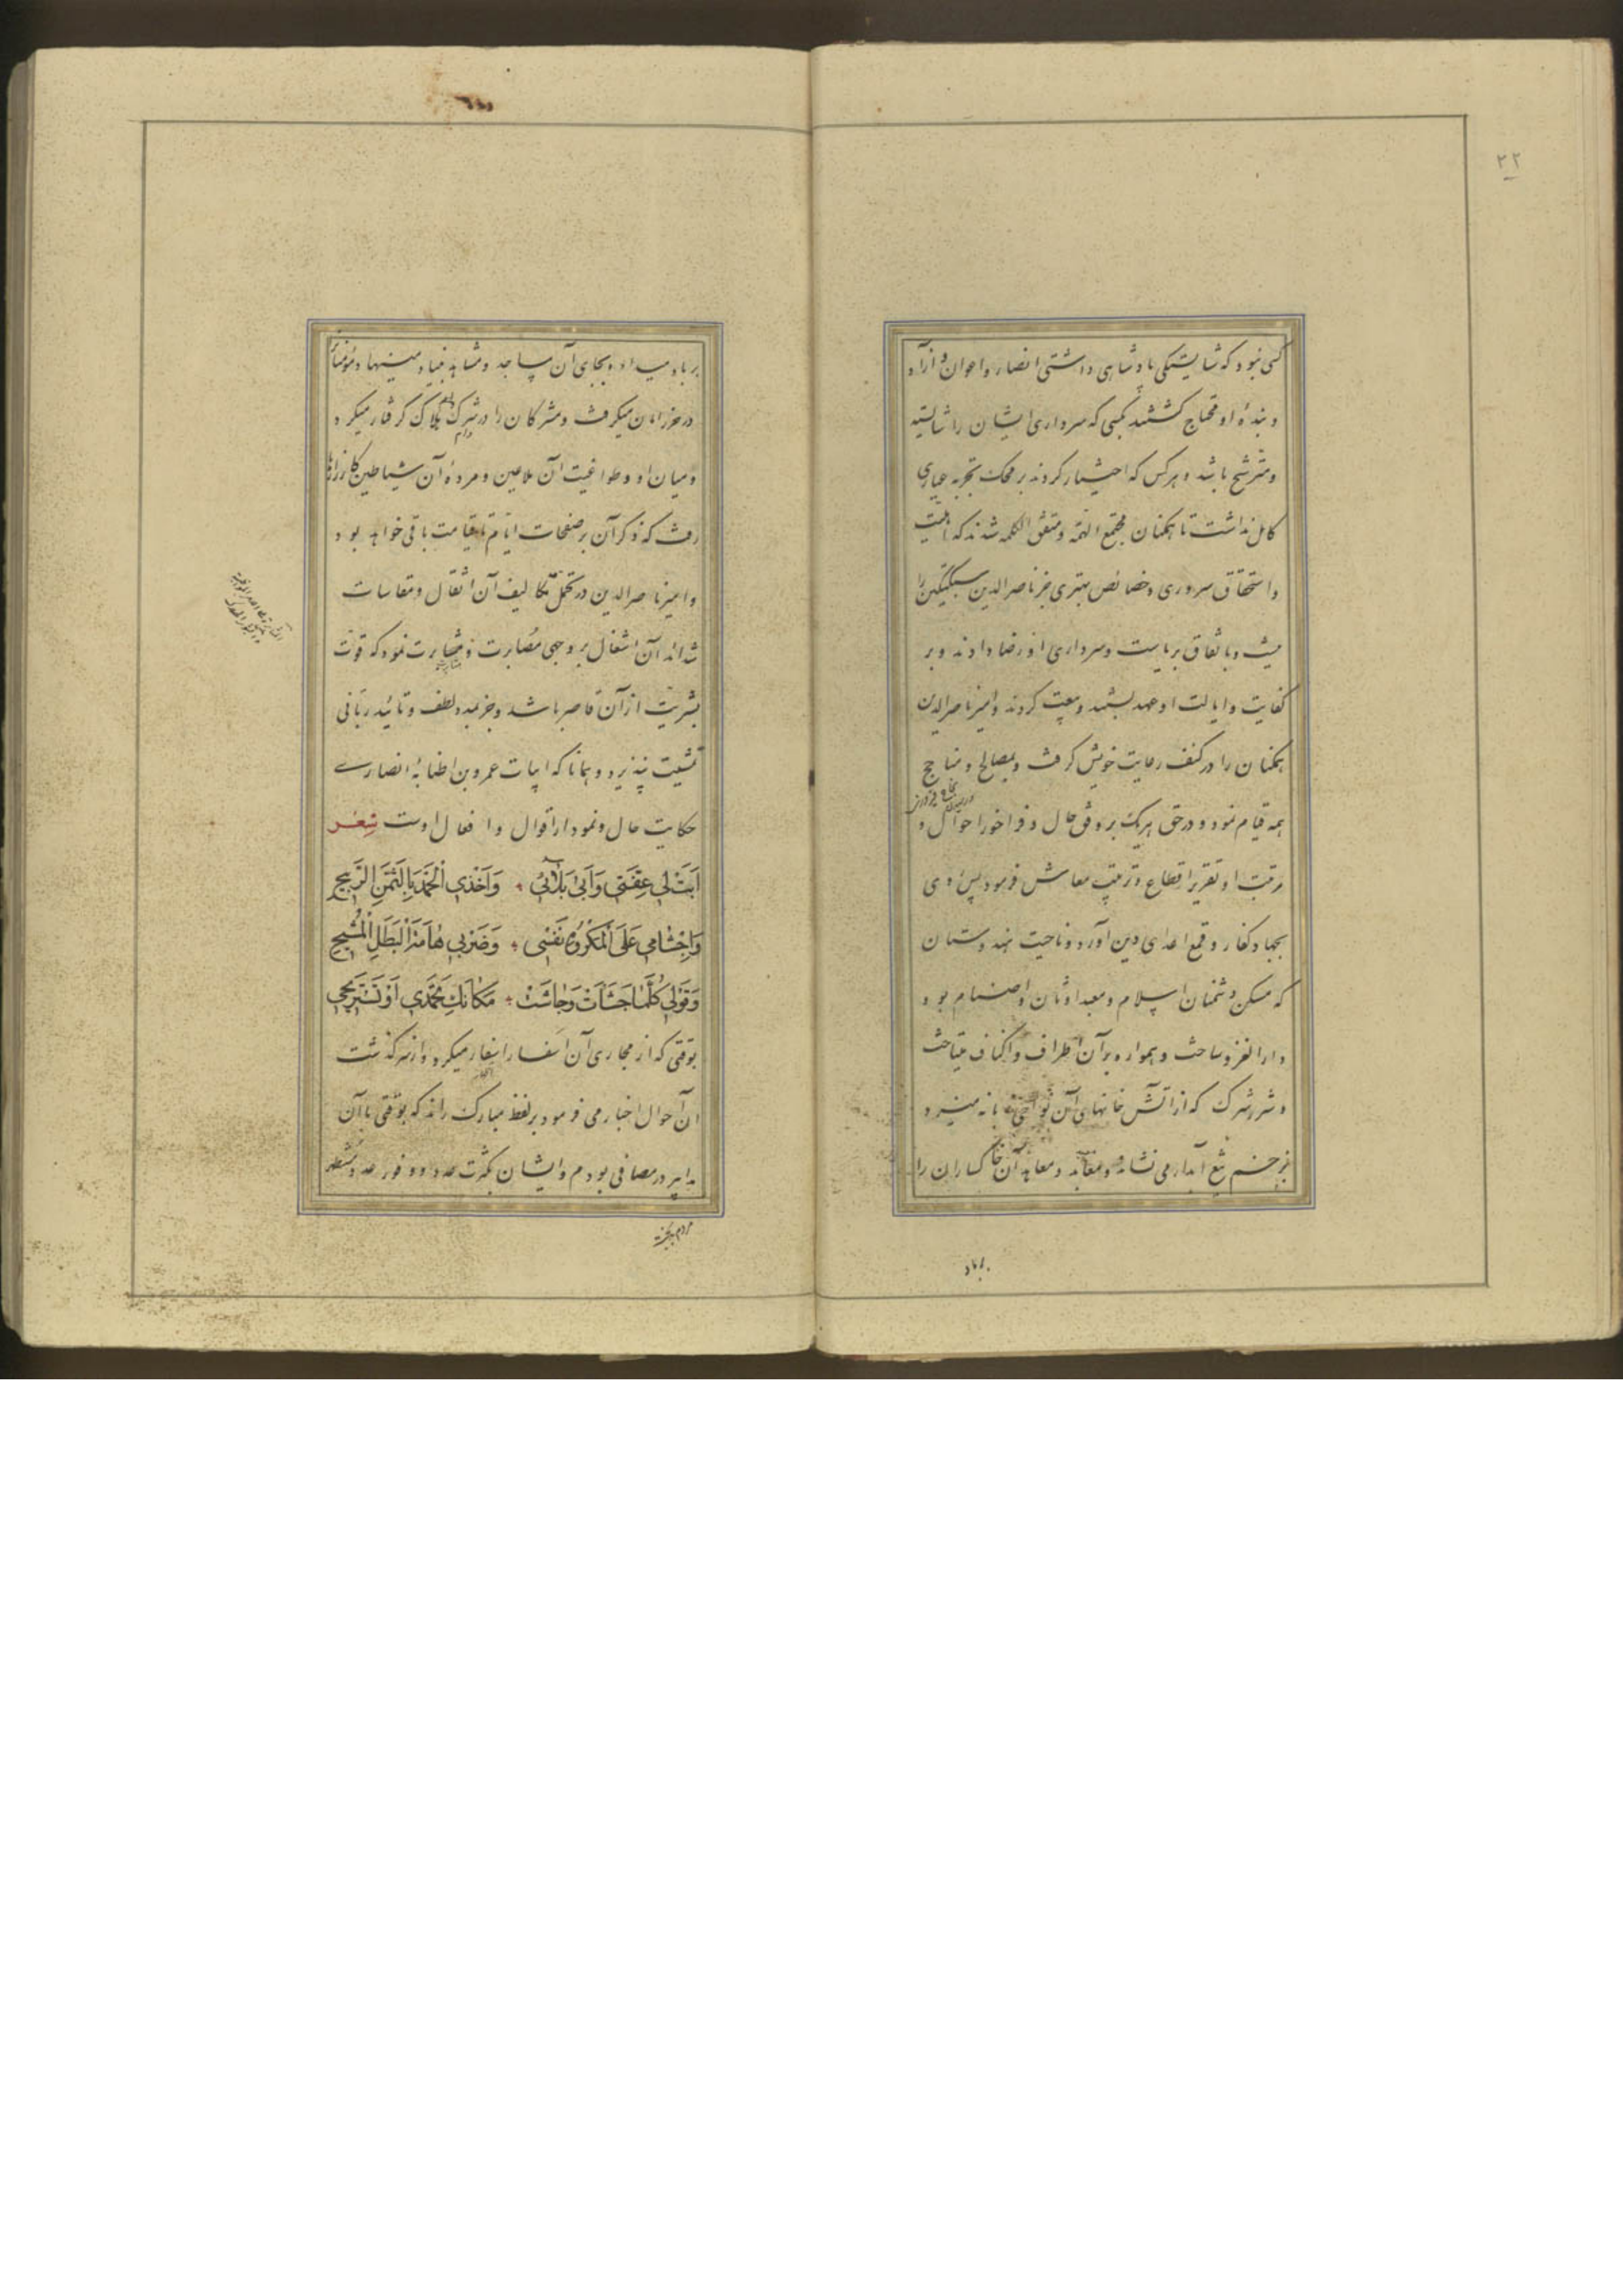 ۲۲
کسی نبود که شایستگی پادشاهی داشتی انصار و اعوان و آزاد
و بنده او محتاج گشتند بکسی که سرداری ایشان را شایسته
و مترشح باشد و هر کس که اختیار کردند بر محک تجربه عیاری
کامل نداشت تا همگنان مجتمع الهمه و متفق الکلمه شدند که اهلیت
و استحقاق سروری و خصائص مهتری جز ناصرالدین سبکتگین را
نیست و باتفاق بریاست و سرداری او رضا دادند و بر
کفایت و ایالت او عهد بستند و بیعت کردند و امیر ناصرالدین
همگنان را در کنف رعایت خویش گرفت و بمصالح و مناجح
همه قیام نمود و در حق هر یک بر وفق حال و فراخور احوال و
رتبت او تقریر اقطاع و ترتیب معاش فرمود پس روی
بجهاد کفار و قمع اعدای دین آورد و ناحیت هندوستان
که مسکن دشمنان اسلام و معبد اوثان و اصنام بود
دار الغزو ساخت و همواره بر آن اطراف و اکناف میتاخت
و شرر شرک که از آتش خانهای آن نواحی زبانه میزد
بزخم تیغ آبدار می نشاند و معابد و معاهد آن خاکساران را
برباد
برباد میداد و بجای آن مساجد و مشاهد بنیاد مینهاد و مؤمنان
در حرز امان میگرفت و مشرکان را در شرک هلاک گرفتار میکرد
و میان او و طواغیت آن ملاعین و مرده آن شیاطین کارزارها
رفت که ذکر آن بر صفحات ایام تا قیامت باقی خواهد بود
و امیر ناصرالدین در تحمل تکالیف آن اثقال و مقاسات
شدائد آن اشغال بر وجهی مصابرت و مثابرت نمود که قوت
بشریت از آن قاصر باشد و جز بمدد لطف و تائید ربانی
تمشیت نپذیرد و همانا که ابیات عمرو بن اطنابه انصاری
حکایت حال و نمودار اقوال و افعال اوست شِعْر
اَبَتْ لی عِفَّتی وَاَبی بَلٰائی وَاَخْذِی الْحَمْدَ بِالثَّمَنِ الرَّبیحِ
وَاِجْشٰامی عَلَی الْمَکْرُوهِ نَفْسی وَضَرْبی هٰامَةَ الْبَطَلِ الْمُشیحِ
وَقَوْلی کُلَّمٰا جَشَأَتْ وَجٰاشَتْ مَکٰانَكِ تُحْمَدی اَوْ تَسْتَریحی
بوقتی که از مجاری آن اسفار اسفار میکرد و از سرگذشت
آن احوال اخبار می فرمود بر لفظ مبارک راند که بوقتی با آن
مدابیر در مصافی بودم و ایشان بکثرت عدد و وفور عدد